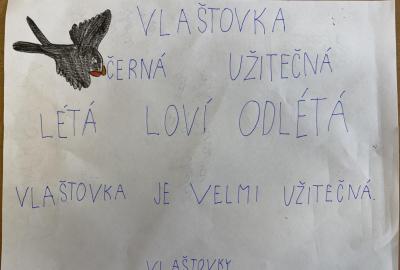 VLAŠTOVKA
ČERNÁ UŽITEČNÁ
LÉTÁ LOVÍ ODLÉTÁ
VLAŠTOVKA JE VELMI UŽITEČNÁ.
VLAŠTOVKY